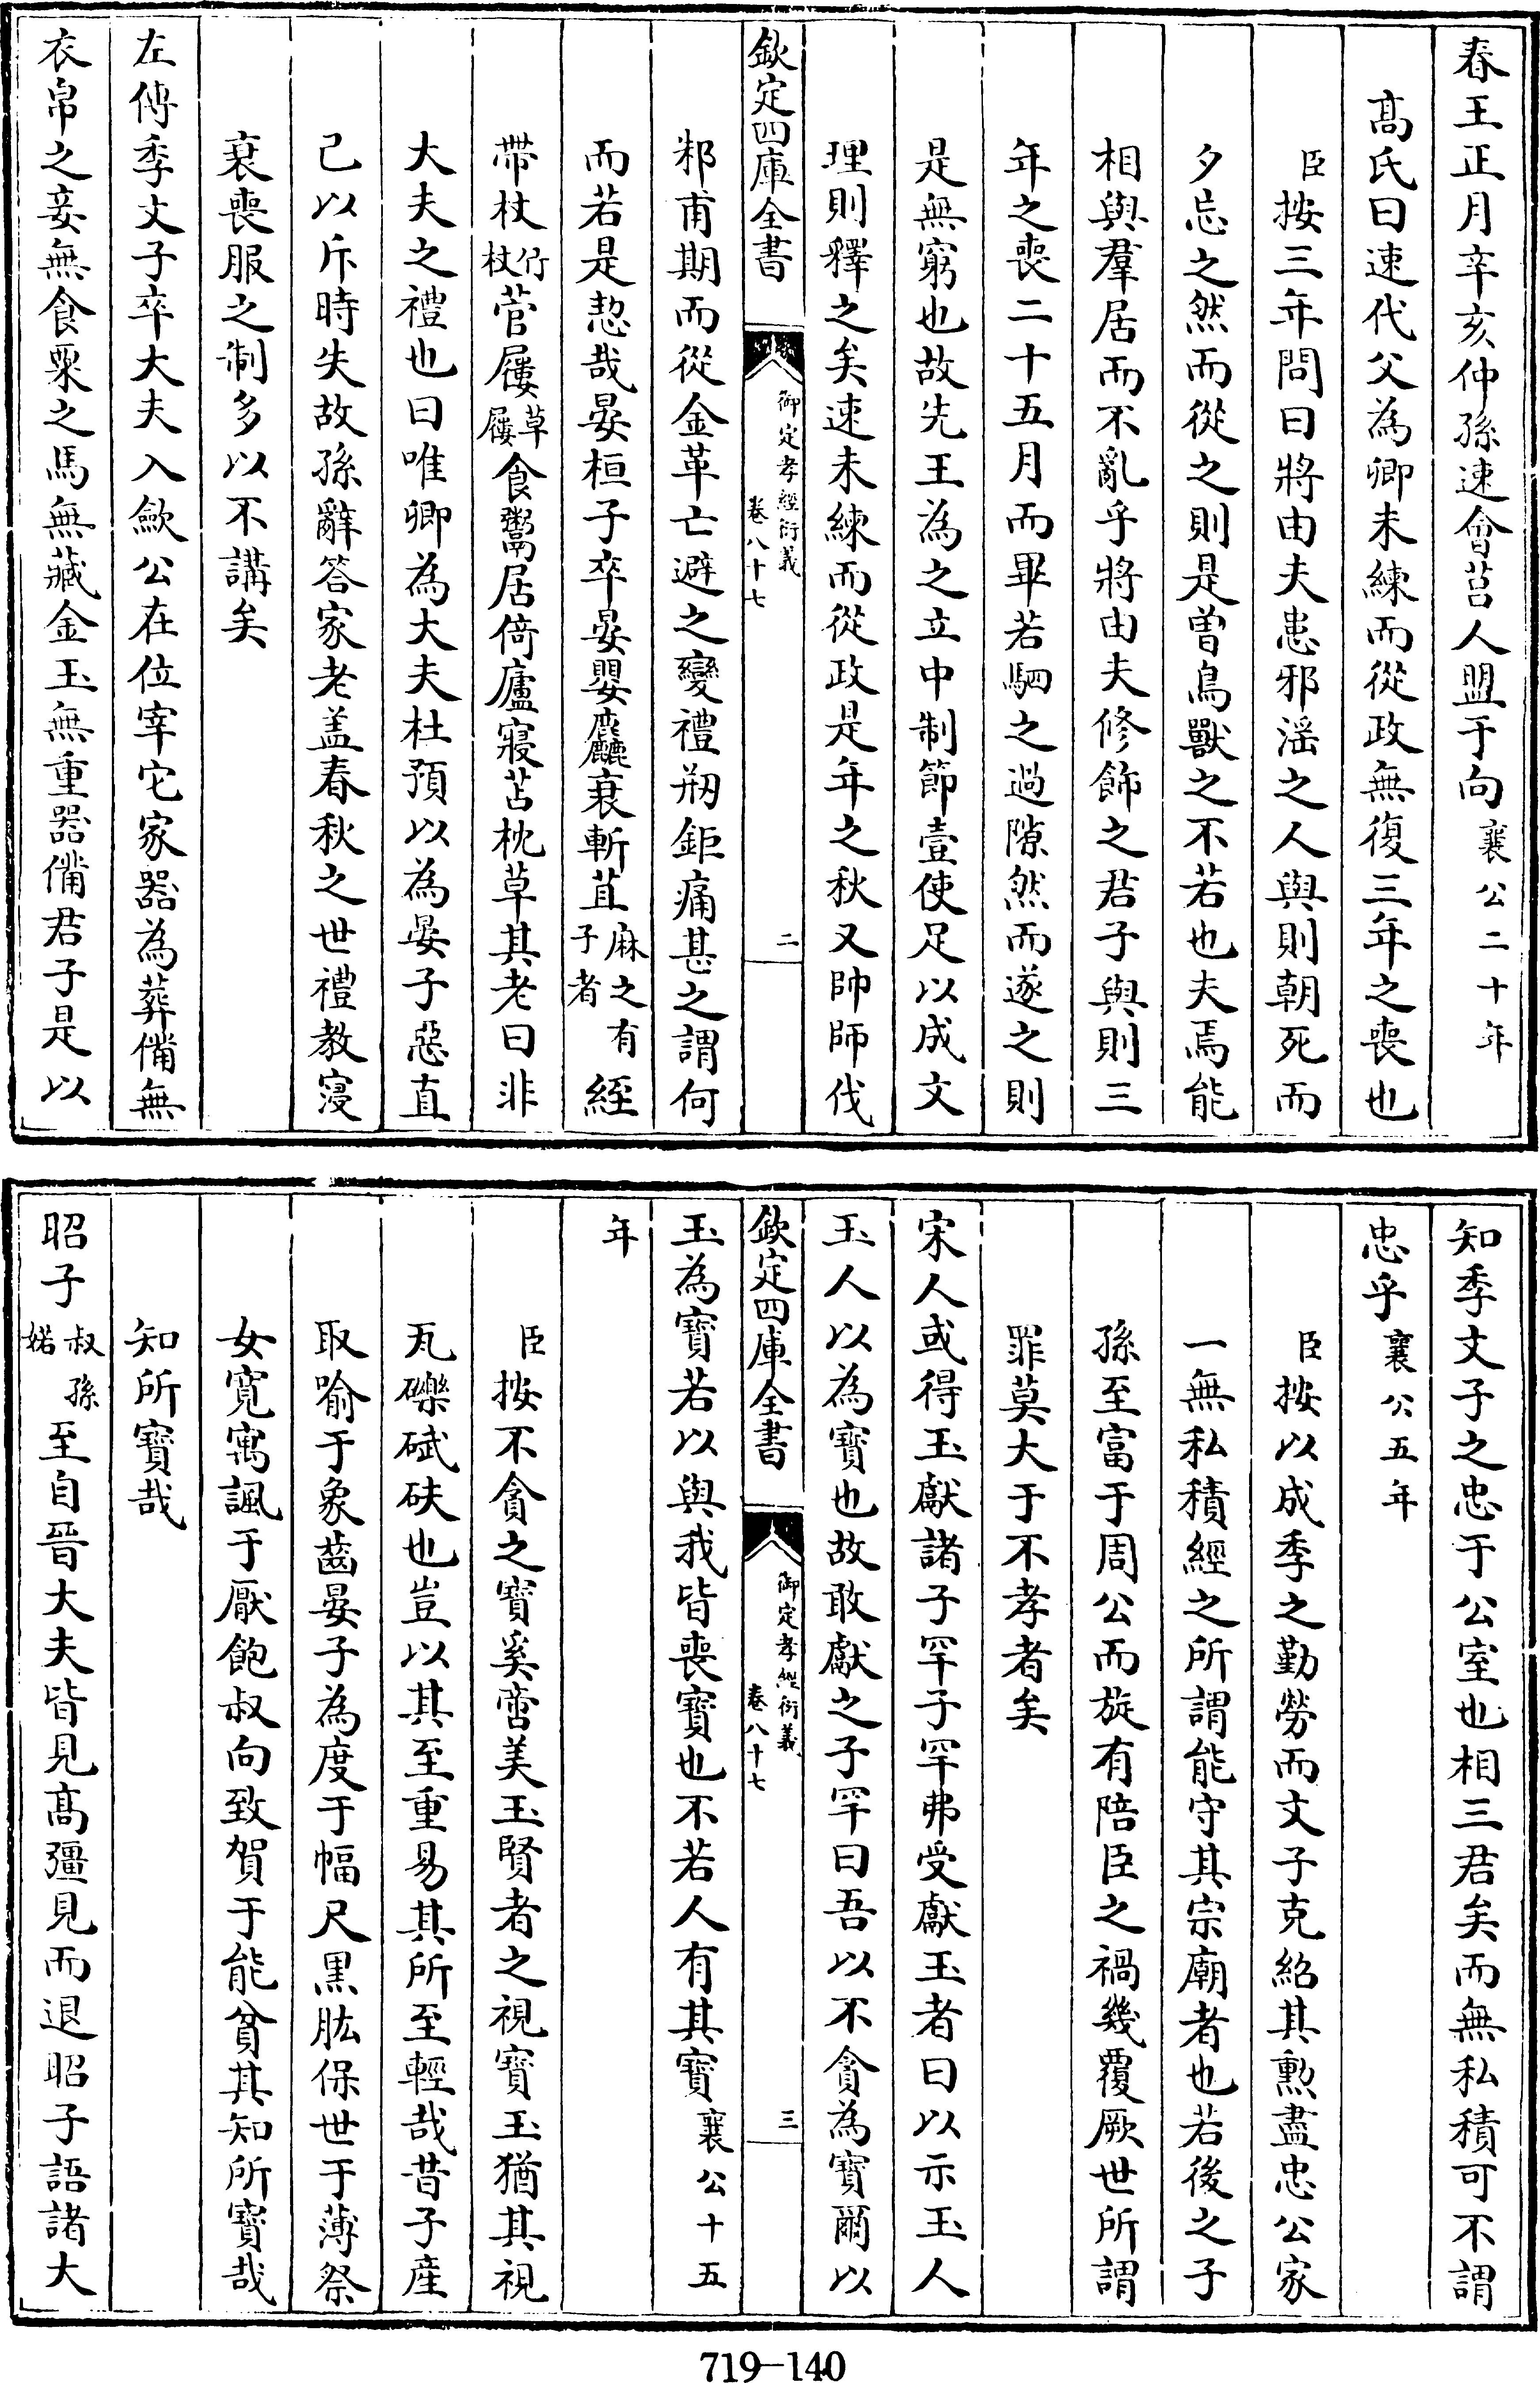 春王正月辛亥仲孫速會莒人盟于向襄公二十年
髙氏曰速代父為卿未練而從政無復三年之喪也
臣按三年問曰將由夫患邪淫之人與則朝死而
夕忘之然而從之則是曾鳥獸之不若也夫焉能
相與羣居而不亂乎將由夫修飾之君子與則三
年之喪二十五月而畢若駟之過隙然而遂之則
是無窮也故先王為之立中制節壹使足以成文
理則釋之矣速未練而從政是年之秋又帥師伐
欽定四庫全書
御定孝經衍義
卷八十七
二
邾甫期而從金革亡避之變禮剏鉅痛甚之謂何
而若是恝哉晏桓子卒晏嬰麤衰斬苴麻之有子者絰
帶杖竹杖菅屨草屨食鬻居倚廬寢苫枕草其老曰非
大夫之禮也曰唯卿為大夫杜預以為晏子惡直
己以斥時失故孫辭答家老盖春秋之世禮教寖
衰喪服之制多以不講矣
左傳季文子卒大夫入斂公在位宰宅家器為葬備無
衣帛之妾無食粟之馬無藏金玉無重器備君子是以
知季文子之忠于公室也相三君矣而無私積可不謂
忠乎襄公五年
臣按以成季之勤勞而文子克紹其勲盡忠公家
一無私積經之所謂能守其宗廟者也若後之子
孫至富于周公而旋有陪臣之禍幾覆厥世所謂
罪莫大于不孝者矣
宋人或得玉獻諸子罕子罕弗受獻玉者曰以示玉人
玉人以為寳也故敢獻之子罕曰吾以不貪為寳爾以
欽定四庫全書
御定孝經衍義
卷八十七
三
玉為寳若以與我皆喪寳也不若人有其寳襄公十五
年
臣按不貪之寳奚啻美玉賢者之視寳玉猶其視
瓦礫碔砆也豈以其至重易其所至輕哉昔子産
取喻于象齒晏子為度于幅尺黒肱保世于薄祭
女寛寓諷于厭飽叔向致賀于能貧其知所寳哉
知所寳哉
昭子叔孫婼至自晉大夫皆見髙彊見而退昭子語諸大
719-140